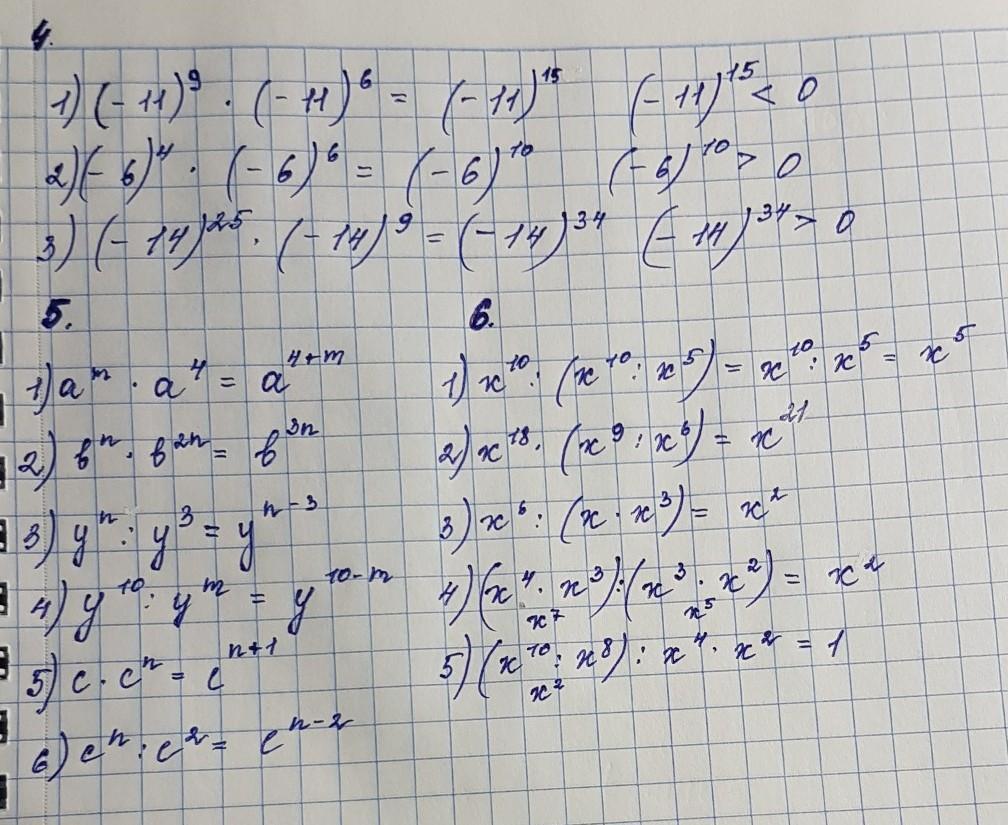 4.
1) (-11)⁹ · (-11)⁶ = (-11)¹⁵ (-11)¹⁵ < 0
2) (-6)⁴ · (-6)⁶ = (-6)¹⁰ (-6)¹⁰ > 0
3) (-14)²⁵ · (-14)⁹ = (-14)³⁴ (-14)³⁴ > 0
5.
1) aᵐ · a⁴ = a⁴⁺ᵐ
2) вⁿ · в²ⁿ = в³ⁿ
3) yⁿ : y³ = yⁿ⁻³
4) y¹⁰ : yᵐ = y¹⁰⁻ᵐ
5) c · cⁿ = cⁿ⁺¹
6) cⁿ : c² = cⁿ⁻²
6.
1) x¹⁰ : (x¹⁰ : x⁵) = x¹⁰ : x⁵ = x⁵
2) x¹⁸ · (x⁹ : x⁶) = x²¹
3) x⁶ : (x · x³) = x²
4) (x⁴ · x³) : (x³ · x²) = x²
x⁷ x⁵
5) (x¹⁰ : x⁸) : x⁴ · x² = 1
x²